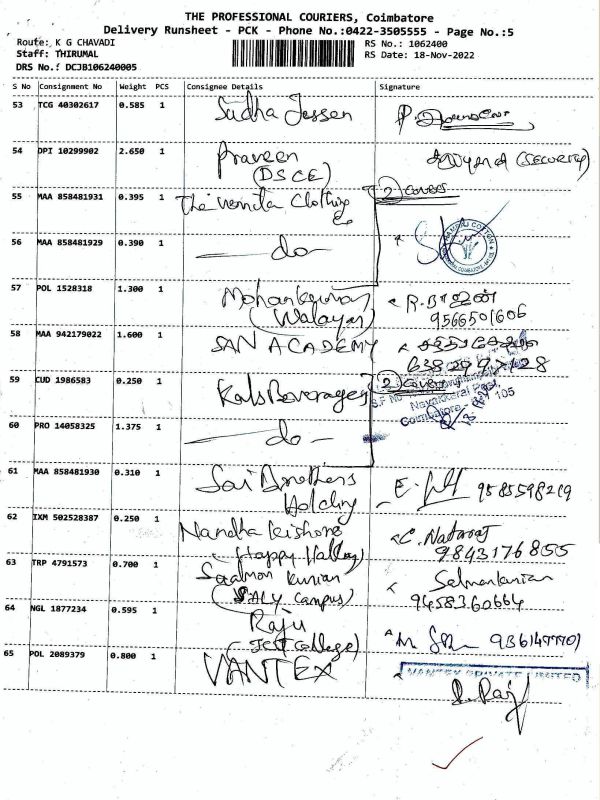 THE PROFESSIONAL COURIERS, Coimbatore
Delivery Runsheet - PCK - Phone No.:0422-3505555 - Page No.:5
Route: K G CHAVADI
RS No.: 1062400
Staff: THIRUMAL
RS Date: 18-Nov-2022
DRS No.: DCJB106240005
S No Consignment No Weight PCS Consignee Details Signature
53 TCG 40302617 0.585 1 Sudha Jessen
54 DPI 10299902 2.650 1 Praveen (SECURITY)
(DSCE)
55 MAA 858481931 0.395 1 The Clothing 2 covers
Co
56 MAA 858481929 0.390 1 — do —
57 POL 1528318 1.300 1 Mohankumar
(Walayar) 9566501606
58 MAA 942179022 1.600 1 SAN ACADEMY
59 CUD 1986583 0.250 1 Kals Beverages 2 Covers
Coimbatore - 105
60 PRO 14058325 1.375 1 — do —
61 MAA 858481930 0.310 1 Sai Brothers 9585598219
Holding
62 IXM 502528387 0.250 1 Nandha Kishore C. Nataraj
(Happy Valley) 9843176855
63 TRP 4791573 0.700 1 Saalmon Kurian Salmankurian
(SALY Campus) 9458360664
64 NGL 1877234 0.595 1 Raju 9361477701
(JCT College)
65 POL 2089379 0.800 1 VANTEX
VANTEX PRIVATE LIMITED